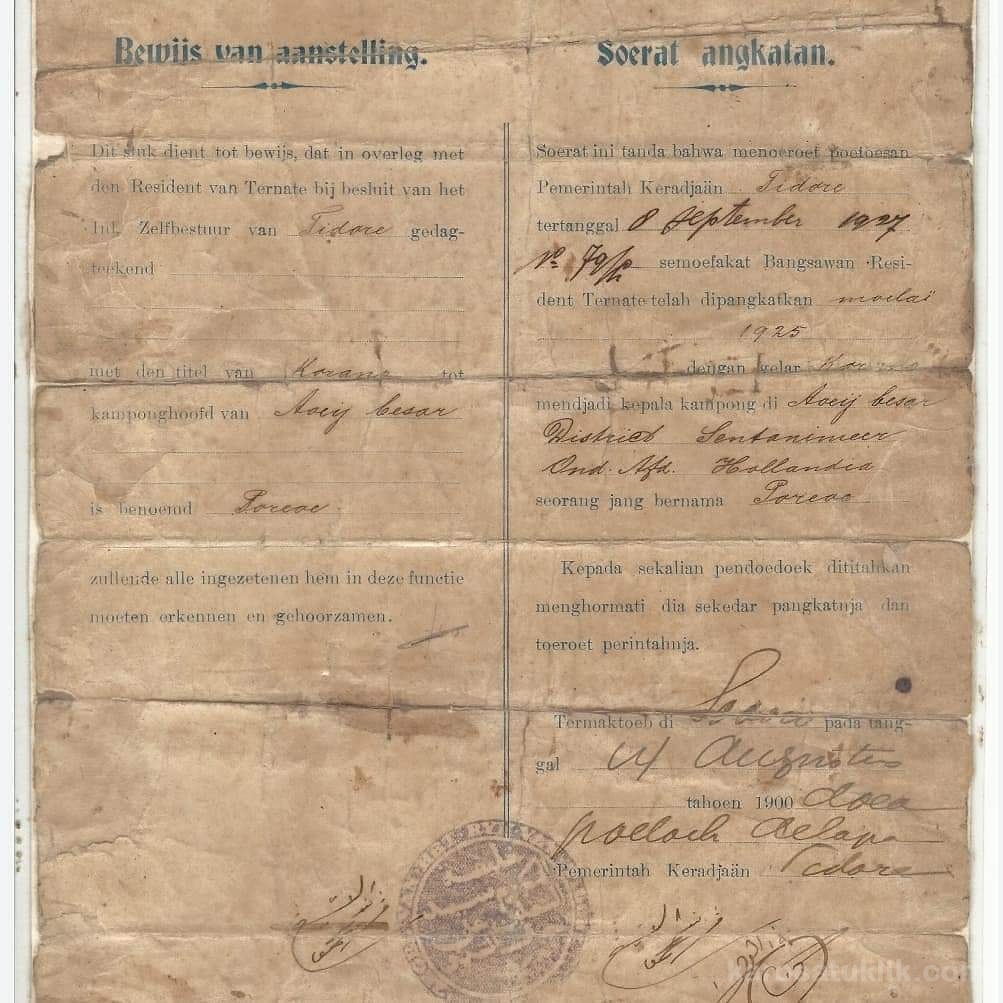 Bewijs van aanstelling.
Dit stuk dient tot bewijs, dat in overleg met
den Resident van Ternate bij besluit van het
Inl. Zelfbestuur van Tidore gedag-
teekend
met den titel van Korano tot
kamponghoofd van Aoeij besar
is benoemd
zullende alle ingezetenen hem in deze functie
moeten erkennen en gehoorzamen.
Soerat angkatan.
Soerat ini tanda bahwa menoeroet poetoesan
Pemerintah Keradjaän Tidore
tertanggal 8 September 1927
No 79/ semoefakat Bangsawan Resi-
dent Ternate telah dipangkatkan moelai
1925
dengan gelar Korano
mendjadi kepala kampong di Aoeij besar
District Sentanimeer
Ond. Afd. Hollandia
seorang jang bernama
Kepada sekalian pendoedoek dititahkan
menghormati dia sekedar pangkatnja dan
toeroet perintahnja.
Termaktoeb di pada tang-
gal 14 Augustus
tahoen 1900 doea
poeloeh delapan
Pemerintah Keradjaän Tidore